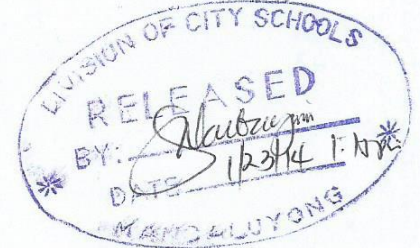 DIVISION OF CITY SCHOOLS
RELEASED
BY:
DATE 1/23/14
MANDALUYONG